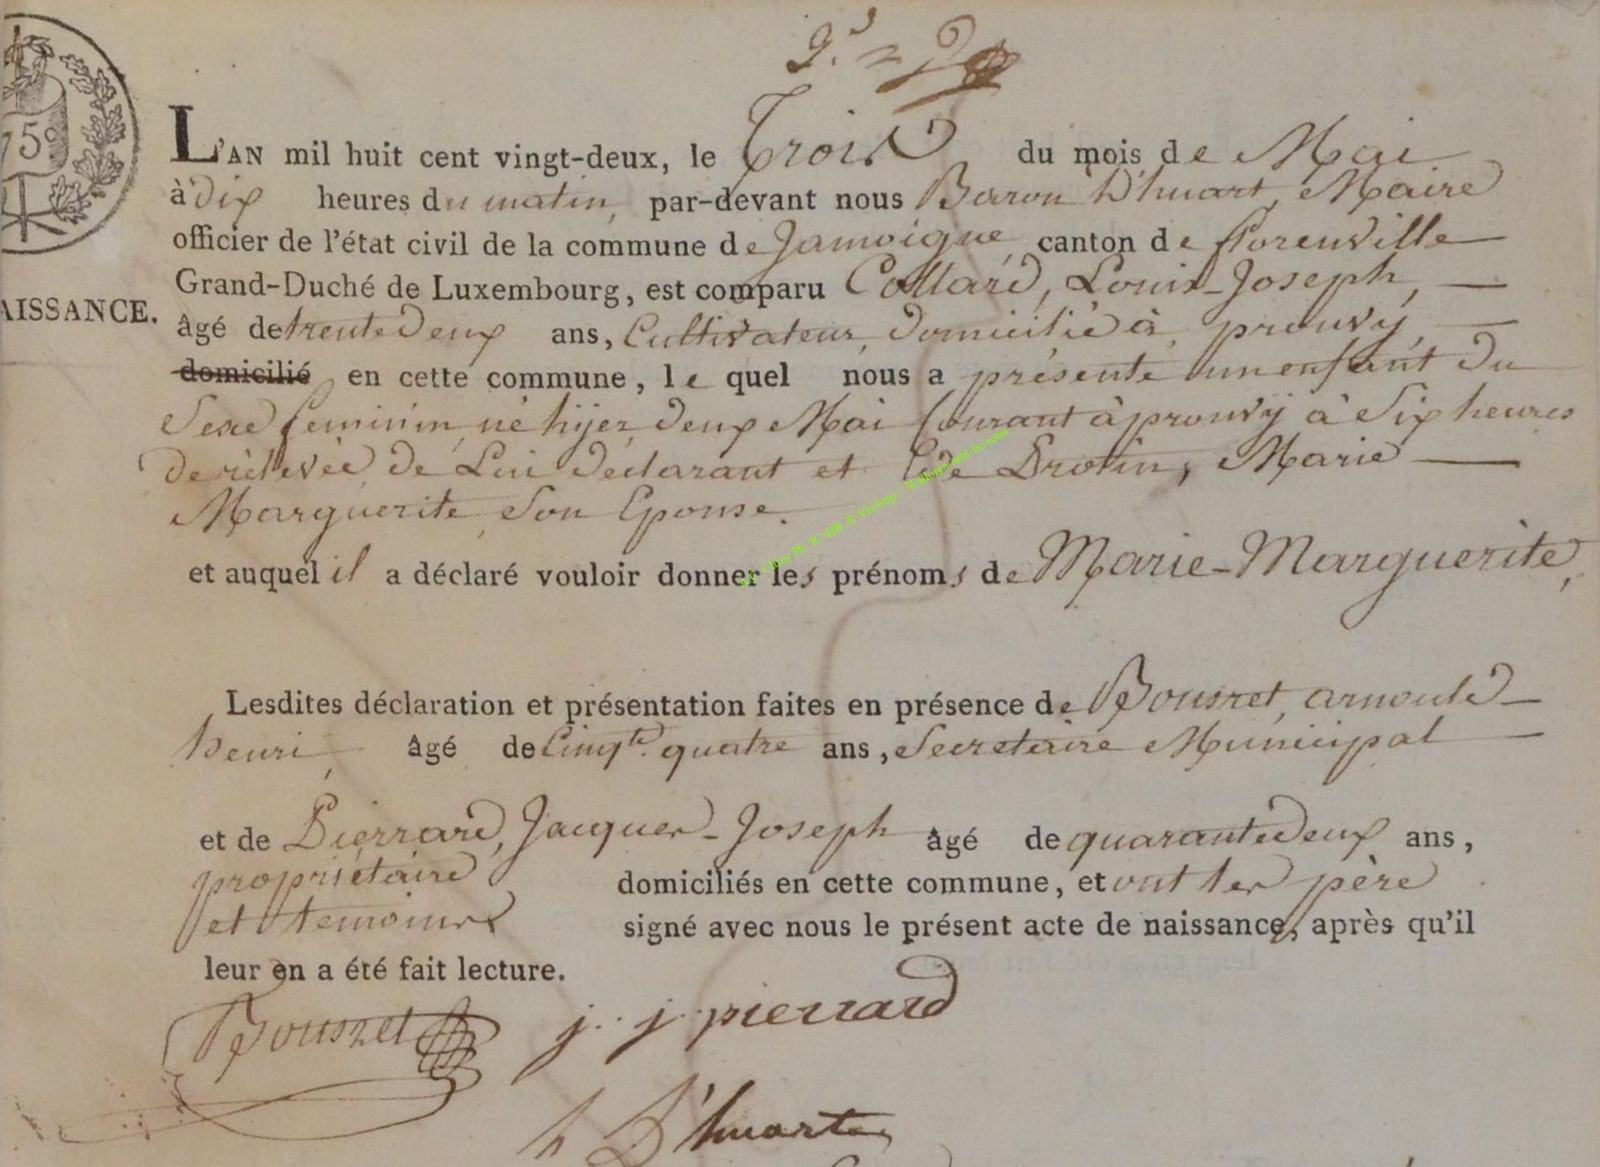 L'AN mil huit cent vingt-deux, le Trois du mois de Mai
à dix heures du matin, par-devant nous Baron D'huart, Maire
officier de l'état civil de la commune de Jamoigne, canton de florenville
Grand-Duché de Luxembourg, est comparu Collard, Louis-Joseph,
AISSANCE.
âgé de trente deux ans, Cultivateur, domicilié à prouvÿ,
domicilié en cette commune, le quel nous a présenté un enfant du
Sexe feminin, né hijer, deux Mai Courant à prouvÿ à Six heures
de relevée, de Lui déclarant et de Drotin, Marie
Marguerite Son Epouse.
et auquel il a déclaré vouloir donner les prénoms de Marie-Marguerite,
Lesdites déclaration et présentation faites en présence de Bousret, arnould
henri, âgé de Cinqte quatre ans, Secretaire Municipal
et de Pierrard, Jacques-Joseph âgé de quarante deux ans,
propriétaire domiciliés en cette commune, et ont les père
et temoins signé avec nous le présent acte de naissance, après qu'il
leur en a été fait lecture.
Bousret j. j. pierrard
D'huart